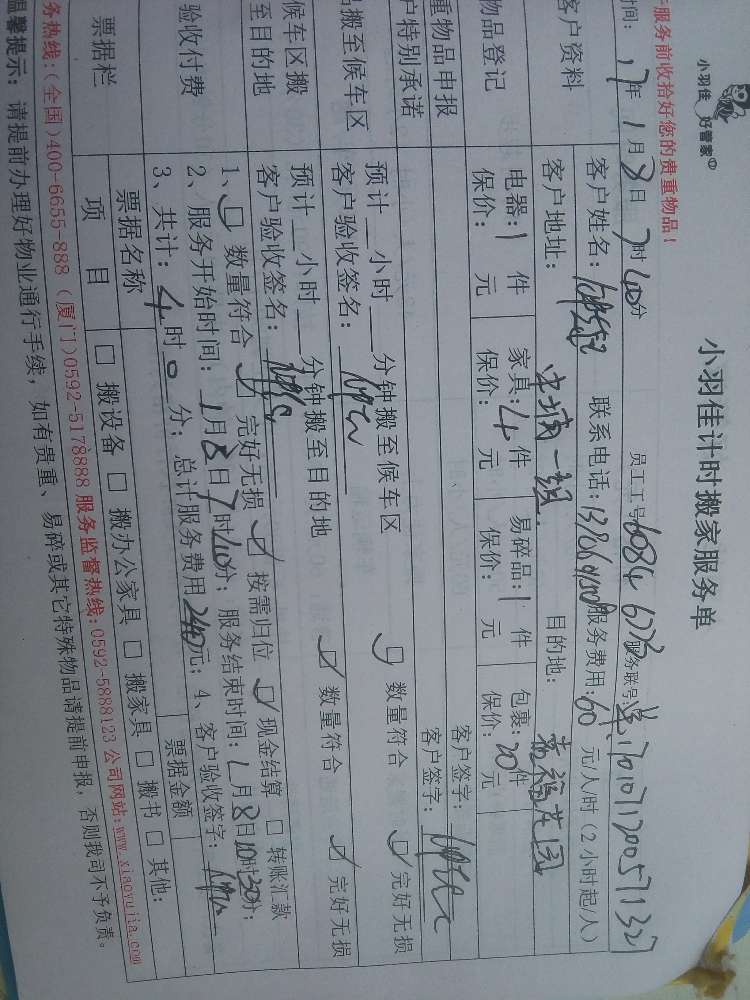 小羽佳 好管家
小羽佳计时搬家服务单
服务前收拾好您的贵重物品！
员工工号 6084 服务联号:
时间: 17年 1月 8日 7时 40分
客户资料
客户姓名: 联系电话: 服务费用: 60 元/人/时 (2小时起/人)
客户地址: 目的地:
物品登记
电器: 1 件 家具: 4 件 易碎品: 1 件 包裹: 20 件
保价: 元 保价: 元 保价: 元 保价: 元
重物品申报 客户签字:
户特别承诺 客户签字:
搬至候车区
预计 小时 分钟搬至候车区
客户验收签名: 数量符合 完好无损
候车区搬至目的地
预计 小时 分钟搬至目的地
客户验收签名: 数量符合 完好无损
验收付费
1、 数量符合 完好无损 按需归位 现金结算 转账汇款
2、服务开始时间: 1月8日7时40分; 服务结束时间: 1月8日10时30分;
3、共计: 4时0分; 总计服务费用 240 元; 4、客户验收签字:
票据栏
票据名称 票据金额
项目 搬设备 搬办公家具 搬家具 搬书 其他:
务热线:(全国)400-6655-888 (厦门)0592-5178888 服务监督热线:0592-5888123 公司网站:www.xiaoyujia.com
温馨提示: 请提前办理好物业通行手续, 如有贵重、易碎或其它特殊物品请提前申报, 否则我司不予负责。